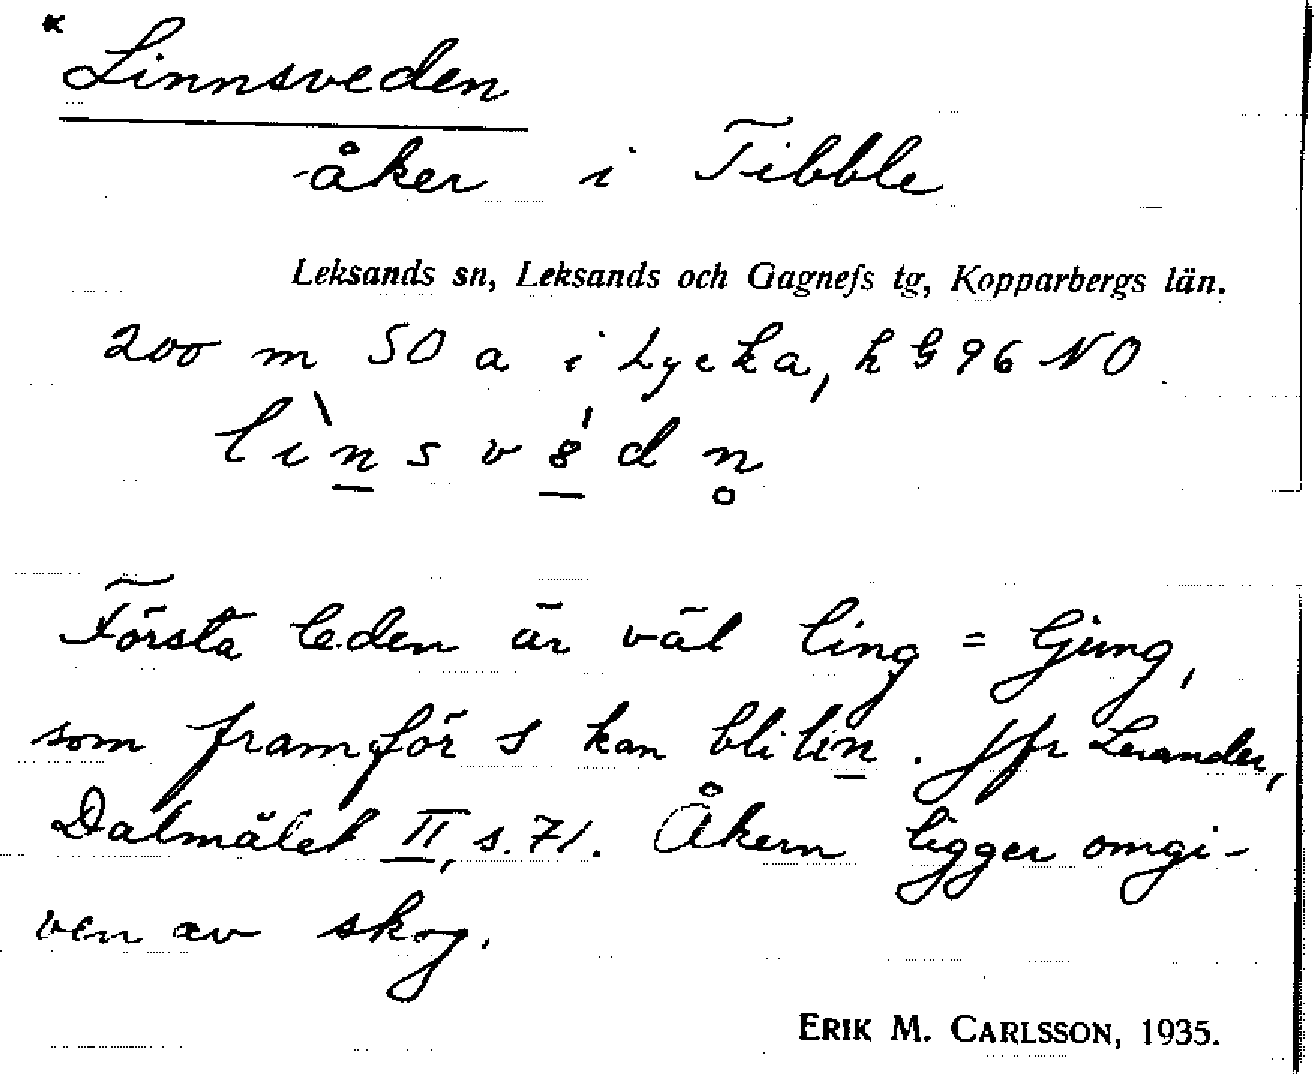 * Linnsveden
åker i Tibble
Leksands sn, Leksands och Gagnefs tg, Kopparbergs län.
200 m SO a i Lycka, h G 96 NO
lìnsv8́dn̥
Första leden är väl ling = ljung,
som framför s kan bli lin. Jfr Levander,
Dalmålet II, s. 71. Åkern ligger omgi-
ven av skog.
ERIK M. CARLSSON, 1935.